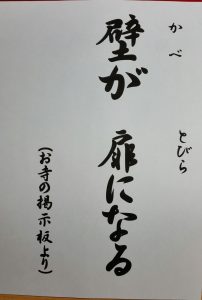 かべ
とびら
壁が 扉になる
(お寺の掲示板より)